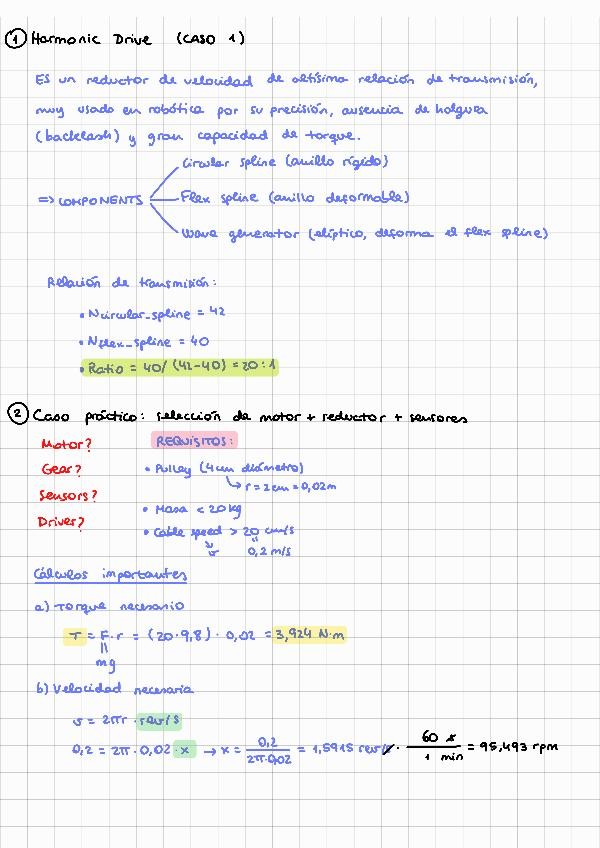 1 Harmonic Drive (CASO 1)
Es un reductor de velocidad de altísima relación de transmisión,
muy usado en robótica por su precisión, ausencia de holgura
(backlash) y gran capacidad de torque.
Circular spline (anillo rígido)
=> COMPONENTS
Flex spline (anillo deformable)
Wave generator (elíptico, deforma el flex spline)
Relación de transmisión:
• Ncircular_spline = 42
• Nflex_spline = 40
• Ratio = 40/ (42-40) = 20:1
2 Caso práctico: selección de motor + reductor + sensores
Motor? REQUISITOS:
Gear? • Pulley (4cm diámetro)
↳ r = 2cm = 0,02m
Sensors?
• Masa < 20kg
Driver?
• Cable speed > 20 cm/s
v 0,2 m/s
Cálculos importantes
a) Torque necesario
T = F·r = (20·9,8) · 0,02 = 3,924 N·m
mg
b) Velocidad necesaria
v = 2πr · rev/s
0,2 = 2π·0,02 · x → x = 0,2 / 2π·0,02 = 1,5915 rev/s · 60 s / 1 min = 95,493 rpm